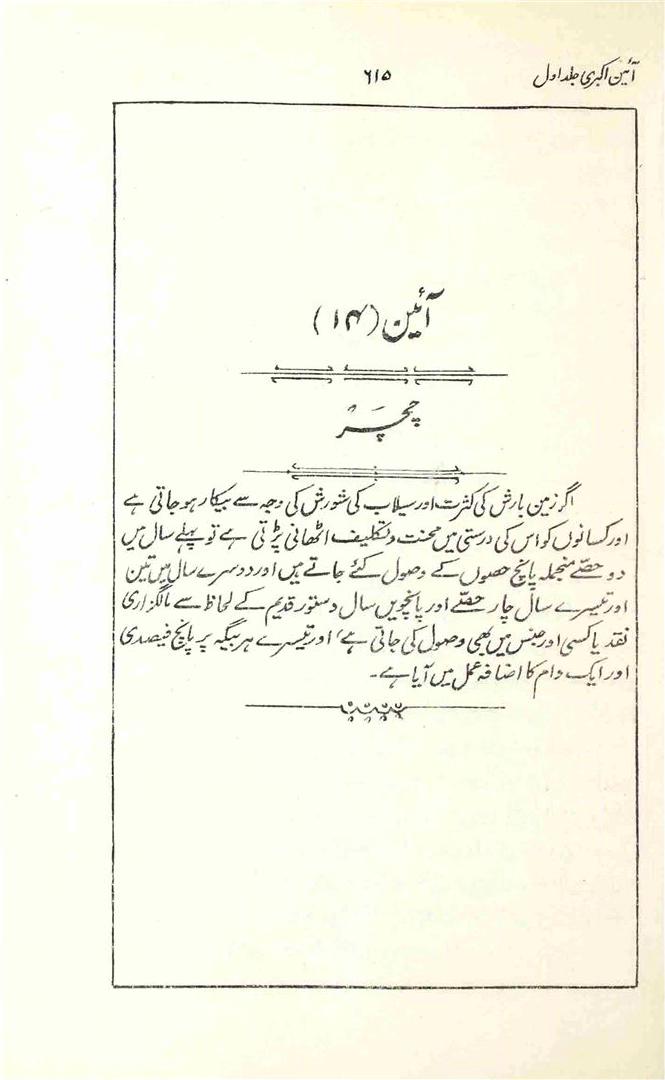 آئین اکبری جلد اول
۶۱۵
آئین (۱۴)
چچَر
اگر زمین بارش کی کثرت اور سیلاب کی شورش کی وجہ سے بیکار ہو جاتی ہے
اور کسانوں کو اس کی درستی میں محنت و تکلیف اٹھانی پڑتی ہے تو پہلے سال میں
دو حصّے منجملہ پانچ حصّوں کے وصول کئے جاتے ہیں اور دوسرے سال میں تین
اور تیسرے سال چار حصّے اور پانچویں سال دستور قدیم کے لحاظ سے مالگزاری
نقد یا کسی اور جنس میں بھی وصول کی جاتی ہے' اور تیسرے ہر بیگہ پر پانچ فیصدی
اور ایک دام کا اضافہ عمل میں آیا ہے۔